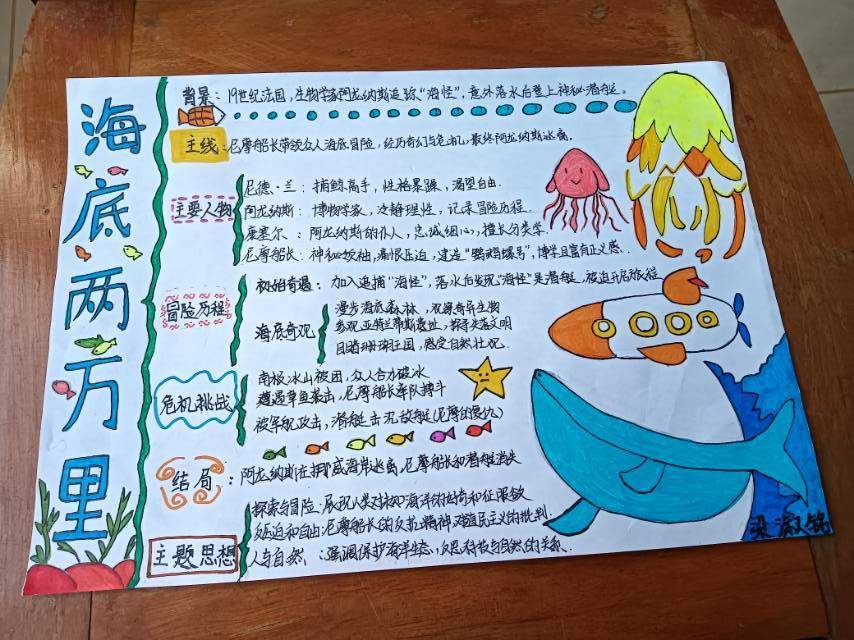 海底两万里
背景：19世纪法国，生物学家阿龙纳斯追踪“海怪”，意外落水后登上神秘潜艇。
主线：尼摩船长带领众人海底冒险，经历奇幻与危机，最终阿龙纳斯逃离。
主要人物
尼德·兰：捕鲸高手，性格暴躁，渴望自由.
阿龙纳斯：博物学家，冷静理性，记录冒险历程.
康塞尔：阿龙纳斯的仆人，忠诚细心，擅长分类学.
尼摩船长：神秘领袖，痛恨压迫，建造“鹦鹉螺号”，博学且富有正义感.
冒险历程
初始奇遇：加入追捕“海怪”，落水后发现“海怪”是潜艇，被迫开启旅程
海底奇观
漫步海底森林，观察奇异生物
参观亚特兰蒂斯遗址，探寻失落文明
目睹珊瑚王国，感受自然壮观.
危机挑战
南极冰山被困，众人合力破冰
遭遇章鱼袭击，尼摩船长率队搏斗
被军舰攻击，潜艇击沉敌艇(尼摩的复仇)
结局：阿龙纳斯在挪威海岸逃离，尼摩船长和潜艇消失
主题思想
探索与冒险.展现人类对未知海洋的好奇和征服欲
反压迫和自由.尼摩船长的反抗精神.对殖民主义的批判.
人与自然.：强调保护海洋生态，反思科技与自然的关系.
梁淑铭